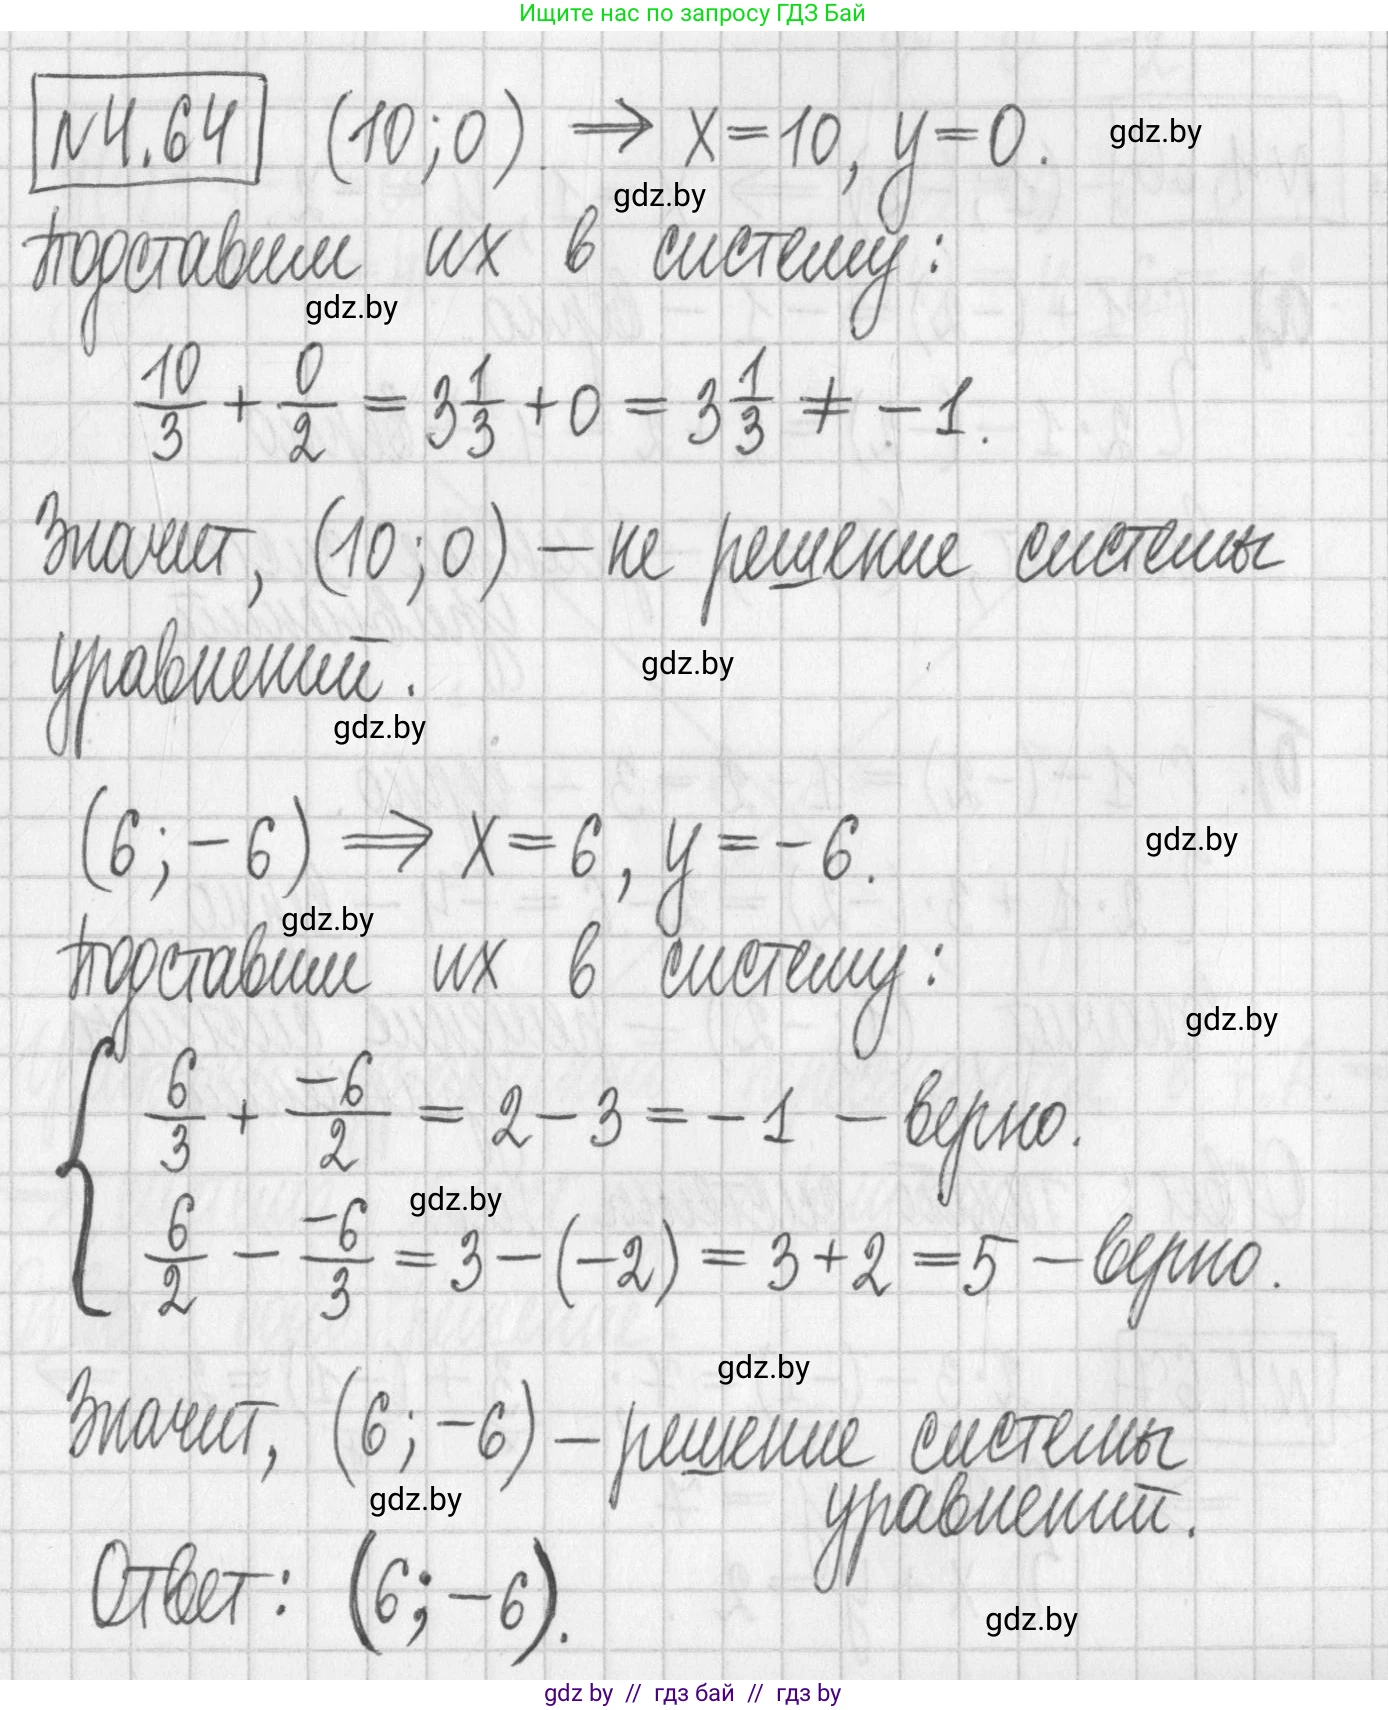 Ищите нас по запросу ГДЗ Бай
№4.64 (10;0). ⇒ x=10, y=0. gdz.by
gdz.by
Подставим их в систему:
gdz.by
10/3 + 0/2 = 3 1/3 + 0 = 3 1/3 ≠ -1.
Значит, (10;0) – не решение системы
уравнений.
gdz.by
gdz.by
(6;-6) ⇒ x=6, y=-6.
gdz.by
gdz.by
Подставим их в систему:
gdz.by
{ 6/3 + -6/2 = 2-3 = -1 – верно.
gdz.by
6/2 - -6/3 = 3-(-2) = 3+2 = 5 – верно.
gdz.by
Значит, (6;-6) – решение системы
gdz.by
уравнений.
Ответ: (6;-6).
gdz.by
gdz by // гдз бай // гдз by